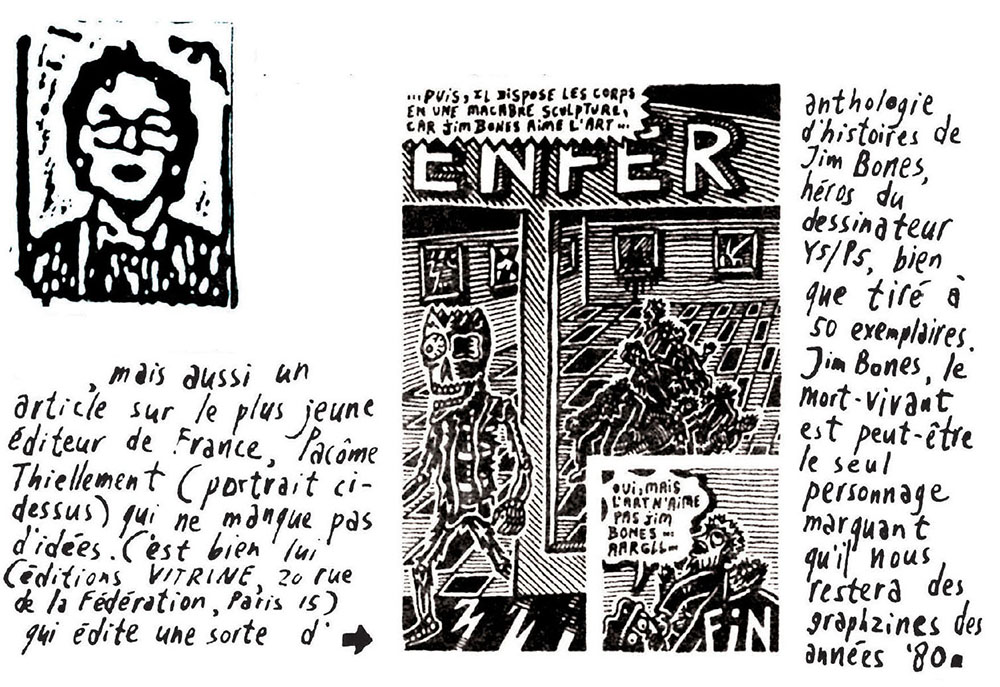 , mais aussi un
article sur le plus jeune
éditeur de France, Pacôme
Thiellement (portrait ci-
dessus) qui ne manque pas
d'idées. C'est bien lui
(éditions VITRINE, 20 rue
de la Fédération, Paris 15)
qui édite une sorte d'
... PUIS, IL DISPOSE LES CORPS
EN UNE MACABRE SCULPTURE,
CAR JIM BONES AIME L'ART ...
ENFER
OUI, MAIS
L'ART N'AIME
PAS JIM
BONES ...
AARGLL...
FIN
anthologie
d'histoires de
Jim Bones,
héros du
dessinateur
YS/PS, bien
que tiré à
50 exemplaires.
Jim Bones, le
mort-vivant
est peut-être
le seul
personnage
marquant
qu'il nous
restera des
graphzines des
années '80